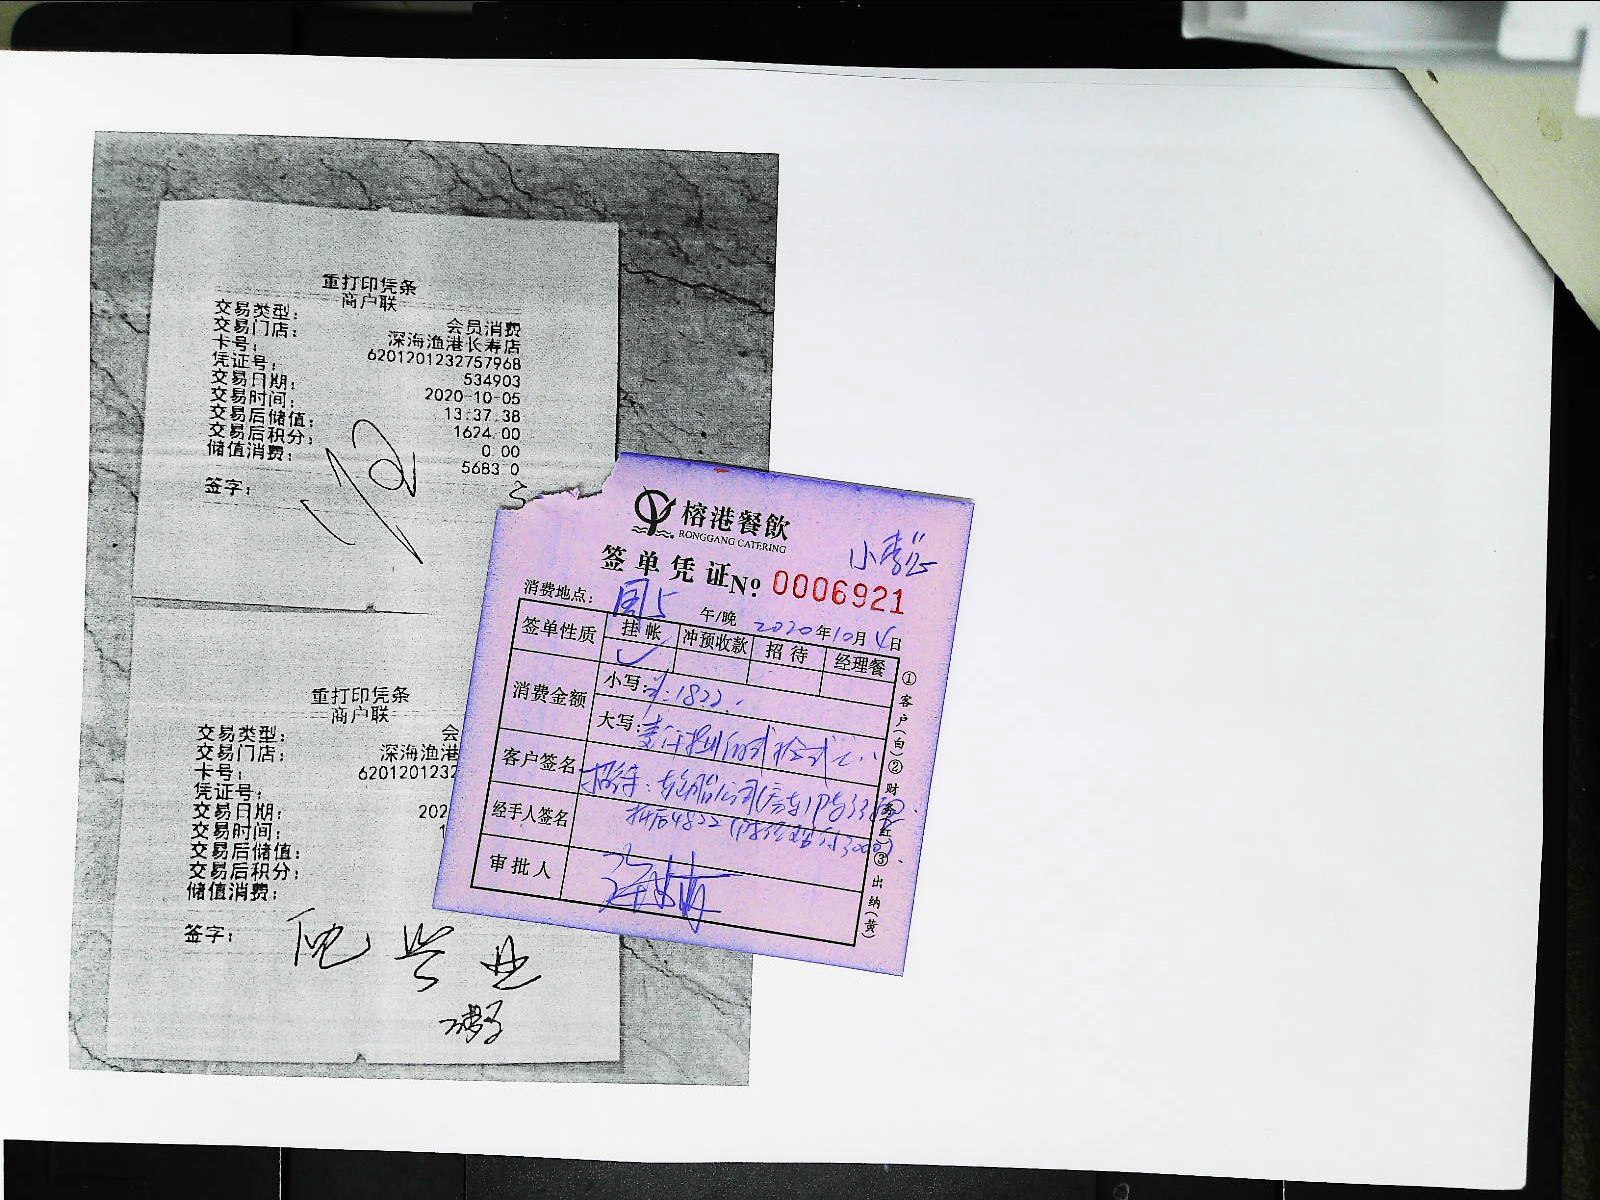 重打印凭条
商户联
交易类型: 会员消费
交易门店: 深海渔港长寿店
卡号: 6201201232757968
凭证号: 534903
交易日期: 2020-10-05
交易时间: 13:37:38
交易后储值: 1624.00
交易后积分: 0.00
储值消费: 5683.0
签字:
重打印凭条
商户联
交易类型: 会
交易门店: 深海渔港
卡号: 6201201232
凭证号:
交易日期: 202
交易时间: 1
交易后储值:
交易后积分:
储值消费:
签字:
榕港餐飲
RONGGANG CATERING
签单凭证 No 0006921
消费地点: 午/晚 2020年10月4日
签单性质 挂帐 冲预收款 招待 经理餐
消费金额 小写: 1822.
大写:
客户签名 招待:
经手人签名 折后4822
审批人
①客户(白)②财务(红)③出纳(黄)